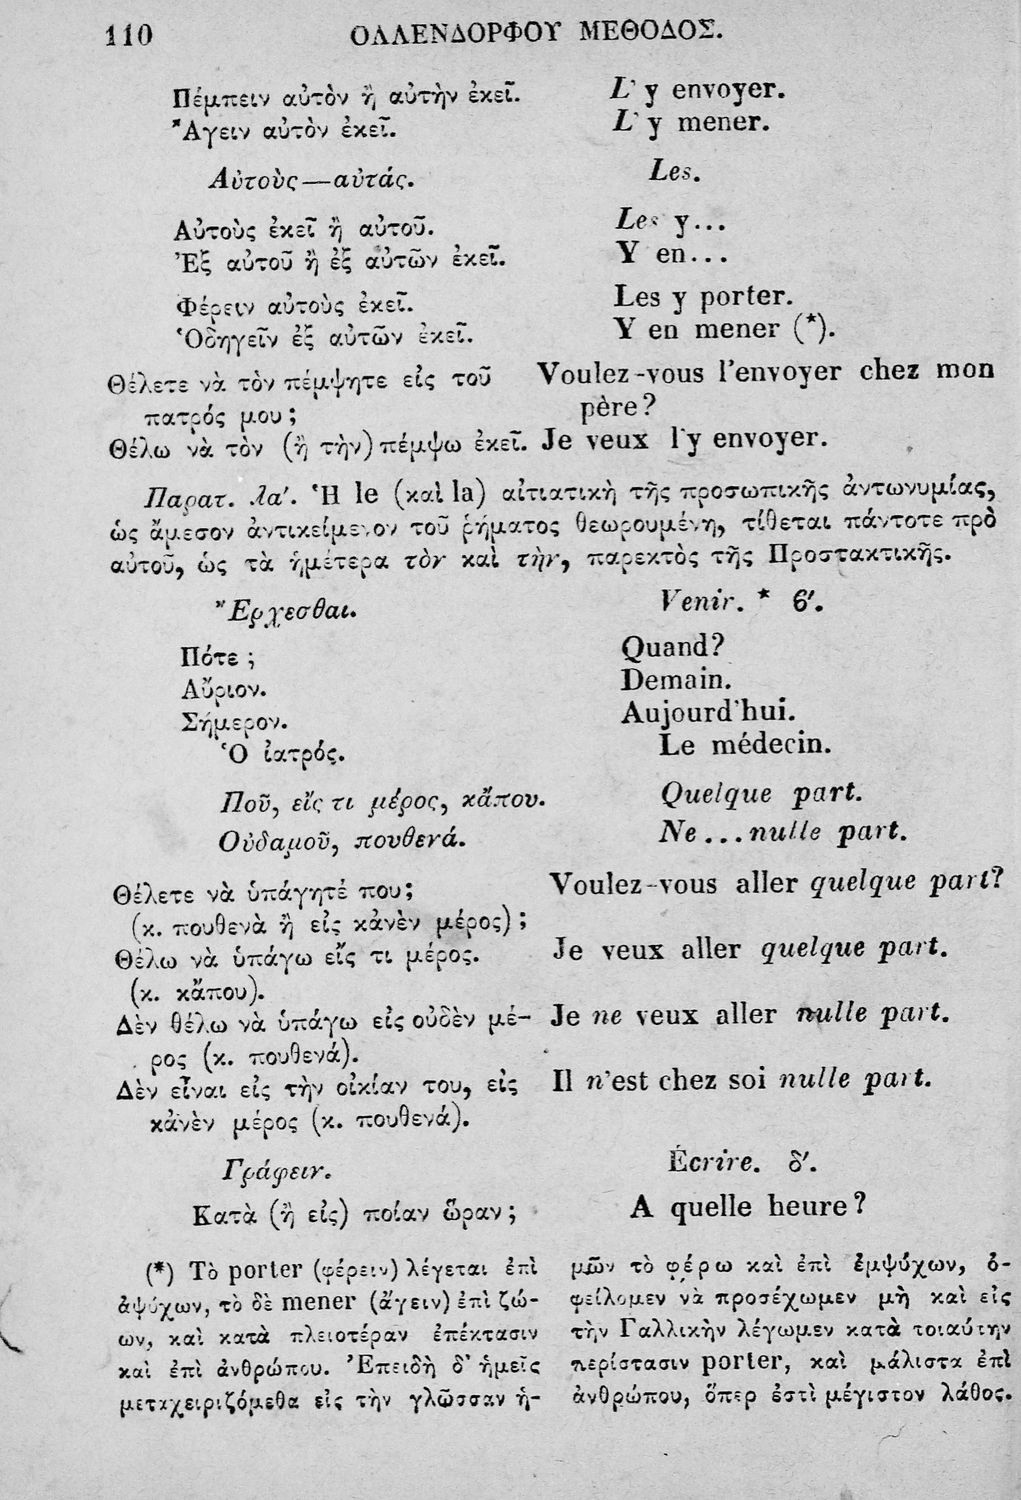 110 ΟΛΛΕΝΔΟΡΦΟΥ ΜΕΘΟΔΟΣ.
Πέμπειν αὐτὸν ἢ αὐτὴν ἐκεῖ. L' y envoyer.
Ἄγειν αὐτὸν ἐκεῖ. L' y mener.
Αὐτοὺς—αὐτάς. Les.
Αὐτοὺς ἐκεῖ ἢ αὐτοῦ. Les y...
Ἐξ αὐτοῦ ἢ ἐξ αὐτῶν ἐκεῖ. Y en...
Φέρειν αὐτοὺς ἐκεῖ. Les y porter.
Ὁδηγεῖν ἐξ αὐτῶν ἐκεῖ. Y en mener (*).
Θέλετε νὰ τὸν πέμψητε εἰς τοῦ Voulez-vous l'envoyer chez mon
πατρός μου; père?
Θέλω νὰ τὸν (ἢ τὴν) πέμψω ἐκεῖ. Je veux l'y envoyer.
Παρατ. λα'. Ἡ le (καὶ la) αἰτιατικὴ τῆς προσωπικῆς ἀντωνυμίας,
ὡς ἄμεσον ἀντικείμενον τοῦ ῥήματος θεωρουμένη, τίθεται πάντοτε πρὸ
αὐτοῦ, ὡς τὰ ἡμέτερα τὸν καὶ τὴν, παρεκτὸς τῆς Προστακτικῆς.
Ἔρχεσθαι. Venir. * ϐ'.
Πότε; Quand?
Αὔριον. Demain.
Σήμερον. Aujourd'hui.
Ὁ ἰατρός. Le médecin.
Ποῦ, εἴς τι μέρος, κἄπου. Quelque part.
Οὐδαμοῦ, πουθενά. Ne...nulle part.
Θέλετε νὰ ὑπάγητέ που; Voulez-vous aller quelque part?
(κ. πουθενὰ ἢ εἰς κἀνὲν μέρος);
Θέλω νὰ ὑπάγω εἴς τι μέρος. Je veux aller quelque part.
(κ. κἄπου).
Δὲν θέλω νὰ ὑπάγω εἰς οὐδὲν μέ- Je ne veux aller nulle part.
ρος (κ. πουθενά).
Δὲν εἶναι εἰς τὴν οἰκίαν του, εἰς Il n'est chez soi nulle part.
κἀνὲν μέρος (κ. πουθενά).
Γράφειν. Écrire. δ'.
Κατὰ (ἢ εἰς) ποίαν ὥραν; A quelle heure?
(*) Τὸ porter (φέρειν) λέγεται ἐπὶ
ἀψύχων, τὸ δὲ mener (ἄγειν) ἐπὶ ζώ-
ων, καὶ κατὰ πλειοτέραν ἐπέκτασιν
καὶ ἐπὶ ἀνθρώπου. Ἐπειδὴ δ' ἡμεῖς
μεταχειριζόμεθα εἰς τὴν γλῶσσαν ἡ-
μῶν τὸ φέρω καὶ ἐπὶ ἐμψύχων, ὀ-
φείλομεν νὰ προσέχωμεν μὴ καὶ εἰς
τὴν Γαλλικὴν λέγωμεν κατὰ τοιαύτην
περίστασιν porter, καὶ μάλιστα ἐπὶ
ἀνθρώπου, ὅπερ ἐστὶ μέγιστον λάθος.